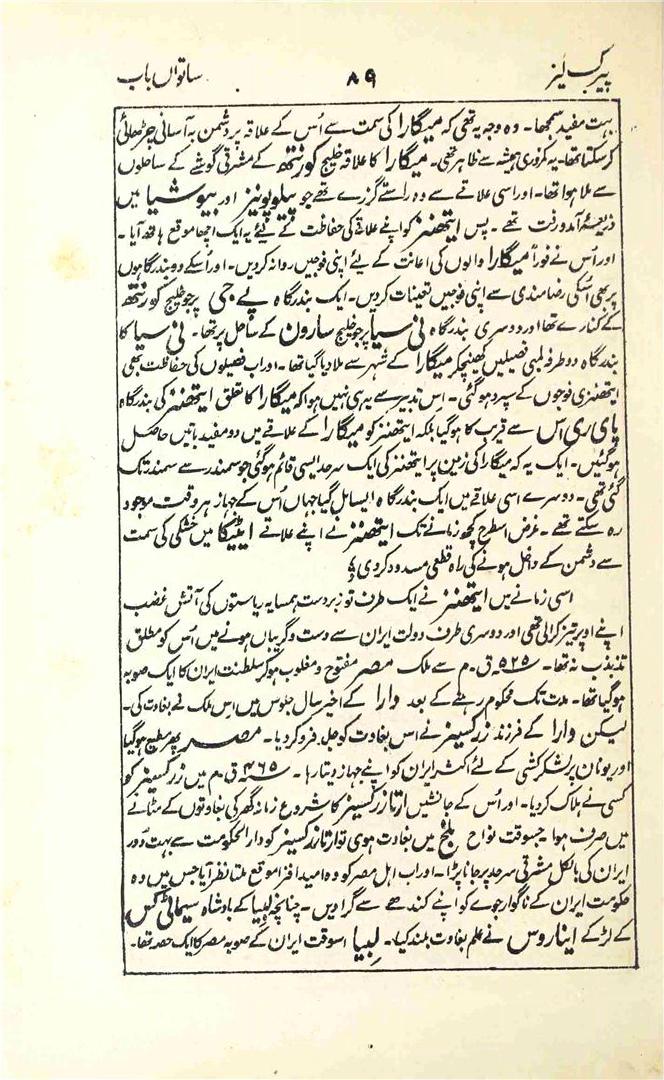 پیرک لیز ۸۹ ساتواں باب
بہت مفید سمجھا۔ وہ وجہ یہ تھی کہ میگارا کی سمت سے اُس کے علاقہ پر دشمن بہ آسانی چڑھائی
کر سکتا تھا۔ یہ کمزوری ہمیشہ سے ظاہر تھی۔ میگارا کا علاقہ خلیج کورنتھ کے مشرقی گوشے کے ساحلوں
سے ملا ہوا تھا۔ اور اسی علاقے سے وہ راستے گزرے تھے جو پیلوپونیز اور بیوشیا میں
ذریعۂ آمد و رفت تھے۔ پس ایتھنز کو اپنے علاقے کی حفاظت کے لیئے یہ ایک اچھا موقع ہاتھ آیا۔
اور اُس نے فوراً میگارا والوں کی اعانت کے لیئے اپنی فوجیں روانہ کر دیں۔ اور اُسکے دو بندرگاہوں
پر بھی اُسکی رضامندی سے اپنی فوجیں تعینات کر دیں۔ ایک بندرگاہ پے جی پر جو خلیج کورنتھ
کے کنارے تھا اور دوسری بندرگاہ نی سیا پر جو خلیج سارون کے ساحل پر تھا۔ نی سیا کا
بندرگاہ دو طرفہ لمبی فصیلیں کھینچکر میگارا کے شہر سے ملا دیا گیا تھا۔ اور اب فصیلوں کی حفاظت بھی
ایتھنزی فوجوں کے سپرد ہو گئی۔ اس تدبیر سے یہی نہیں ہوا کہ میگارا کا تعلق ایتھنز کی بندرگاہ
پای ری اس سے قریب کا ہو گیا بلکہ ایتھنز کو میگارا کے علاقے میں دو مفید باتیں حاصل
ہو گئیں۔ ایک یہ کہ میگارا کی زمین پر ایتھنز کی ایک سرحد ایسی قائم ہو گئی جو سمندر سے سمندر تک
گئی تھی۔ دوسرے اسی علاقے میں ایک بندرگاہ ایسا مل گیا جہاں اُس کے جہاز ہر وقت موجود
رہ سکتے تھے۔ غرض اسطرح کچھ زمانے تک ایتھنز نے اپنے علاقے ایٹیکا میں خشکی کی سمت
سے دشمن کے داخل ہونے کی راہ قطعی مسدود کر دی؛
اسی زمانے میں ایتھنز نے ایک طرف تو زبردست ہمسایہ ریاستوں کی آتش غضب
اپنے اوپر تیز کرالی تھی اور دوسری طرف دولت ایران سے دست و گریباں ہونے میں اُس کو مطلق
تذبذب نہ تھا۔ ۵۲۵ ق۔م سے ملک مصر مفتوح و مغلوب ہو کر سلطنت ایران کا ایک صوبہ
ہو گیا تھا۔ مدت تک محکوم رہنے کے بعد دارا کے اخیر سال جلوس میں اس ملک نے بغاوت کی۔
لیکن دارا کے فرزند زرکسینز نے اس بغاوت کو جلد فرو کر دیا۔ مصر پھر مطیع ہو گیا
اور یونان پر لشکر کشی کے لئے اکثر ایران کو اپنے جہاز دیتا رہا۔ ۴۶۵ ق۔م میں زرکسینز کو
کسی نے ہلاک کر دیا۔ اور اُس کے جانشین ارتازرکسینز کا شروع زمانہ گھر کی بغاوتوں کے مٹانے
میں صرف ہوا۔ جسوقت نواح بلخ میں بغاوت ہوی تو ارتازرکسینز کو دارالحکومت سے بہت دور
ایران کی بالکل مشرقی سرحد پر جانا پڑا۔ اور اب اہل مصر کو وہ امید افزا موقع ملتا نظر آیا جس میں وہ
حکومت ایران کے ناگوار جوے کو اپنے کندھے سے گرا دیں۔ چنانچہ لیبیا کے بادشاہ سیمائی کس
کے لڑکے ایناروس نے علم بغاوت بلند کیا۔ لبیا اسوقت ایران کے صوبہ مصر کا ایک حصہ تھا۔